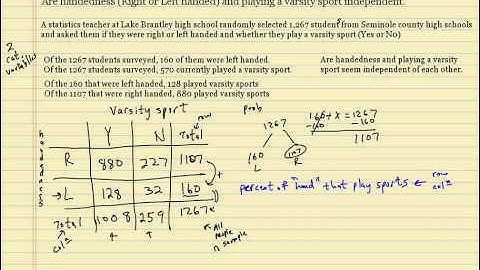 Are handedness (Right or Left handed) and playing a varsity sport independent.
A statistics teacher at Lake Brantley high school randomly selected 1,267 students from Seminole county high schools
and asked them if they were right or left handed and whether they play a varsity sport (Yes or No)
2
cat
variables
Of the 1267 students surveyed, 160 of them were left handed
Of the 1267 students surveyed, 570 currently played a varsity sport.
Are handedness and playing a varsity
sport seem independent of each other.
Of the 160 that were left handed, 128 played varsity sports
Of the 1107 that were right handed, 880 played varsity sports
Varsity sport
row
Y N Total
R 880 227 1107
→L 128 32 160
Total 1008 259 1267
col
All
people
n sample
prob
1267
160 1107
L R
160 + x = 1267
-160 -160
1107
percent of "hand" that play sports ← row
col